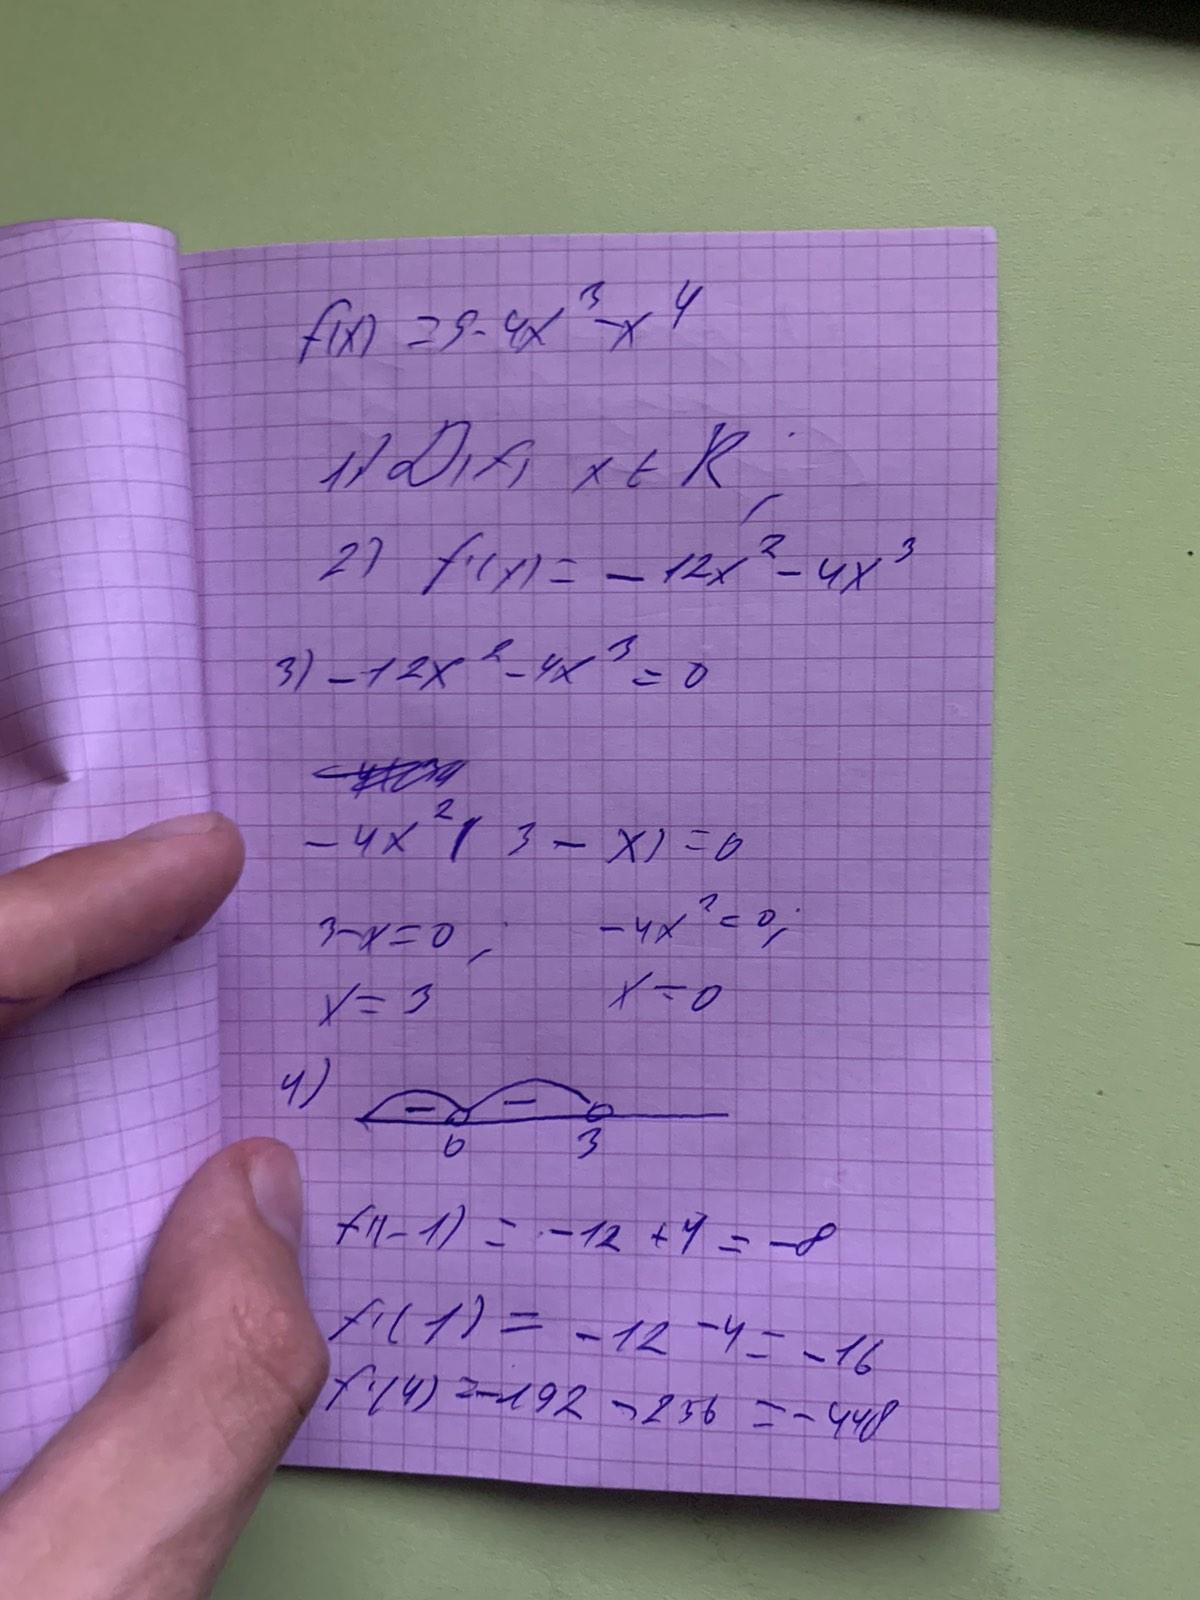 f(x) = 9 - 4x³ - x⁴
1) D(f) x ∈ R;
2) f'(x) = - 12x² - 4x³
3) -12x² - 4x³ = 0
-4x² ( 3 - x) = 0
3-x=0; -4x²=0;
x = 3 x = 0
4) - -
0 3
f'(-1) = -12 + 4 = -8
f'(1) = -12 -4 = -16
f'(4) = -192 - 256 = -448